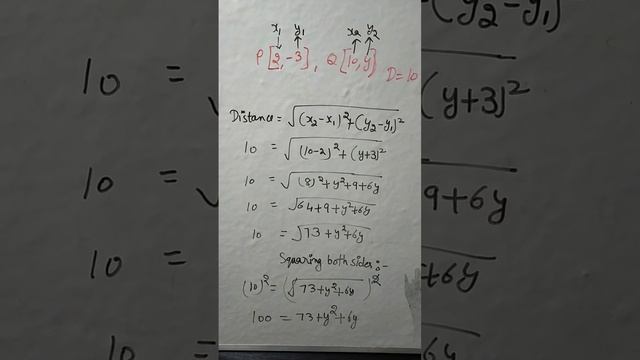 x₁ y₁ x₂ y₂
P[2,-3], Q[10,y] D=10
Distance = √(x₂-x₁)²+(y₂-y₁)²
10 = √(10-2)²+(y+3)²
10 = √(8)²+y²+9+6y
10 = √64+9+y²+6y
10 = √73+y²+6y
Squaring both sides:-
(10)² = (√73+y²+6y)²
100 = 73+y²+6y